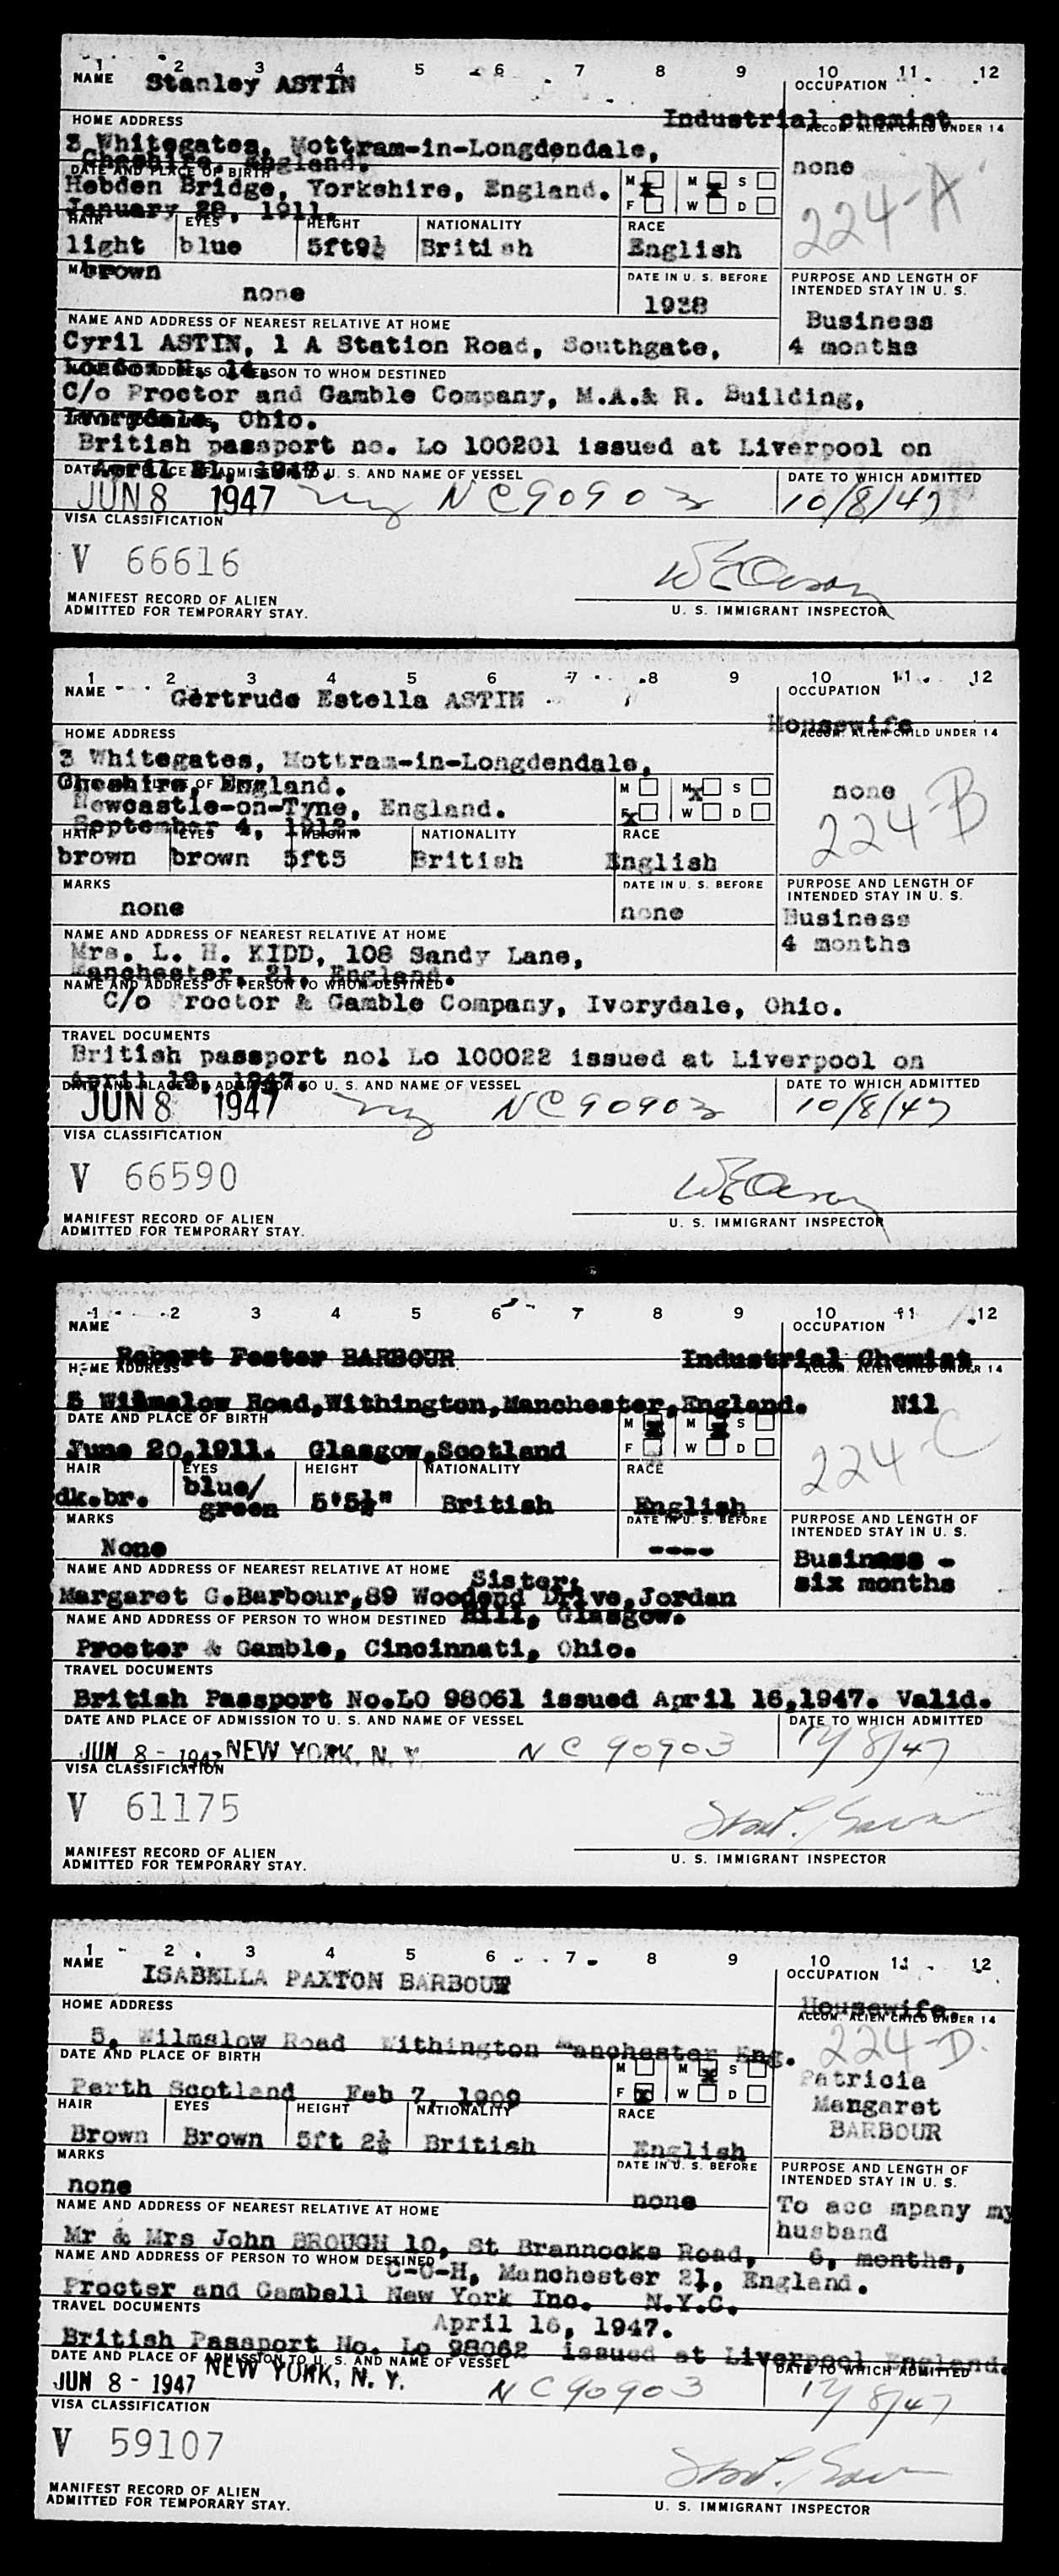 1 2 3 4 5 6 7 8 9 10 11 12
NAME Stanley ASTIN OCCUPATION
Industrial chemist
HOME ADDRESS ACCOM. ALIEN CHILD UNDER 14
3 Whitegates, Mottram-in-Longdendale,
Cheshire, England. none
DATE AND PLACE OF BIRTH
Hebden Bridge, Yorkshire, England. M M S
January 28, 1911. F W D
224-A
HAIR EYES HEIGHT NATIONALITY RACE
light blue 5ft9½ British English
brown
MARKS DATE IN U. S. BEFORE PURPOSE AND LENGTH OF INTENDED STAY IN U. S.
none 1938 Business
NAME AND ADDRESS OF NEAREST RELATIVE AT HOME
Cyril ASTIN, 1 A Station Road, Southgate, 4 months
London N. 14.
NAME AND ADDRESS OF PERSON TO WHOM DESTINED
C/o Proctor and Gamble Company, M.A.& R. Building,
Ivorydale, Ohio.
TRAVEL DOCUMENTS
British passport no. Lo 100201 issued at Liverpool on
April 21, 1947.
DATE AND PLACE OF ADMISSION TO U. S. AND NAME OF VESSEL DATE TO WHICH ADMITTED
JUN 8 1947 ny NC90903 10/8/47
VISA CLASSIFICATION
V 66616
MANIFEST RECORD OF ALIEN
ADMITTED FOR TEMPORARY STAY. U. S. IMMIGRANT INSPECTOR
1 2 3 4 5 6 7 8 9 10 11 12
NAME Gertrude Estella ASTIN OCCUPATION
Housewife
HOME ADDRESS ACCOM. ALIEN CHILD UNDER 14
3 Whitegates, Mottram-in-Longdendale,
Cheshire, England. none
DATE AND PLACE OF BIRTH
Newcastle-on-Tyne, England. M M S
September 4, 1912. F W D
224-B
HAIR EYES HEIGHT NATIONALITY RACE
brown brown 5ft5 British English
MARKS DATE IN U. S. BEFORE PURPOSE AND LENGTH OF INTENDED STAY IN U. S.
none none Business
NAME AND ADDRESS OF NEAREST RELATIVE AT HOME 4 months
Mrs. L. H. KIDD, 108 Sandy Lane,
Manchester, 21, England.
NAME AND ADDRESS OF PERSON TO WHOM DESTINED
C/o Proctor & Gamble Company, Ivorydale, Ohio.
TRAVEL DOCUMENTS
British passport no! Lo 100022 issued at Liverpool on
April 19, 1947.
DATE AND PLACE OF ADMISSION TO U. S. AND NAME OF VESSEL DATE TO WHICH ADMITTED
JUN 8 1947 ny NC90903 10/8/47
VISA CLASSIFICATION
V 66590
MANIFEST RECORD OF ALIEN
ADMITTED FOR TEMPORARY STAY. U. S. IMMIGRANT INSPECTOR
1 2 3 4 5 6 7 8 9 10 11 12
NAME OCCUPATION
Robert Foster BARBOUR Industrial Chemist
HOME ADDRESS ACCOM. ALIEN CHILD UNDER 14
5 Wilmslow Road,Withington,Manchester,England. Nil
DATE AND PLACE OF BIRTH M M S
June 20,1911. Glasgow,Scotland F W D
224-C
HAIR EYES HEIGHT NATIONALITY RACE
dk.br. blue/green 5'5½" British English
MARKS DATE IN U. S. BEFORE PURPOSE AND LENGTH OF INTENDED STAY IN U. S.
None ---- Business - six months
NAME AND ADDRESS OF NEAREST RELATIVE AT HOME Sister:
Margaret C.Barbour,89 Woodend Drive,Jordan
Hill, Glasgow.
NAME AND ADDRESS OF PERSON TO WHOM DESTINED
Procter & Gamble, Cincinnati, Ohio.
TRAVEL DOCUMENTS
British Passport No.LO 98061 issued April 16,1947. Valid.
DATE AND PLACE OF ADMISSION TO U. S. AND NAME OF VESSEL DATE TO WHICH ADMITTED
JUN 8 - 1947 NEW YORK, N. Y. NC 90903 12/8/47
VISA CLASSIFICATION
V 61175
MANIFEST RECORD OF ALIEN
ADMITTED FOR TEMPORARY STAY. U. S. IMMIGRANT INSPECTOR
1 2 3 4 5 6 7 8 9 10 11 12
NAME ISABELLA PAXTON BARBOUR OCCUPATION
Housewife.
HOME ADDRESS ACCOM. ALIEN CHILD UNDER 14
5, Wilmslow Road Withington Manchester Eng. 224-D.
DATE AND PLACE OF BIRTH M M S
Perth Scotland Feb 7, 1909 F W D
Patricia
Mangaret
BARBOUR
HAIR EYES HEIGHT NATIONALITY RACE
Brown Brown 5ft 2½ British English
MARKS DATE IN U. S. BEFORE PURPOSE AND LENGTH OF INTENDED STAY IN U. S.
none none To acc mpany my husband
NAME AND ADDRESS OF NEAREST RELATIVE AT HOME
Mr & Mrs John BROUGH 10, St Brannocks Road, 6, months,
C-O-H, Manchester 21, England.
NAME AND ADDRESS OF PERSON TO WHOM DESTINED
Procter and Gambell New York Inc. N.Y.C.
TRAVEL DOCUMENTS April 16, 1947.
British Passport No. Lo 98062 issued at Liverpool England.
DATE AND PLACE OF ADMISSION TO U. S. AND NAME OF VESSEL DATE TO WHICH ADMITTED
JUN 8 - 1947 NEW YORK, N. Y. NC90903 12/8/47
VISA CLASSIFICATION
V 59107
MANIFEST RECORD OF ALIEN
ADMITTED FOR TEMPORARY STAY. U. S. IMMIGRANT INSPECTOR